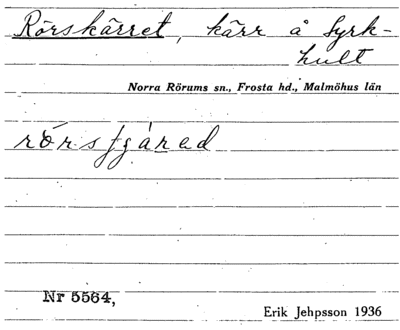 Rörskärret, kärr å Syrk-
hult
Norra Rörums sn., Frosta hd., Malmöhus län
Nr 5564,
Erik Jehpsson 1936